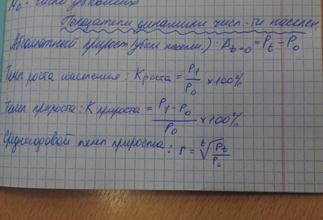 Показатели динамики числ-ти населен.
Абсолютный прирост (убыль населен.): Δt-0 = Pt - P0
Темп роста населения: К роста = P1/P0 × 100%
Темп прироста: К прироста = P1 - P0/P0 × 100%
Среднегодовой темп прироста: r = t√Pt/P0